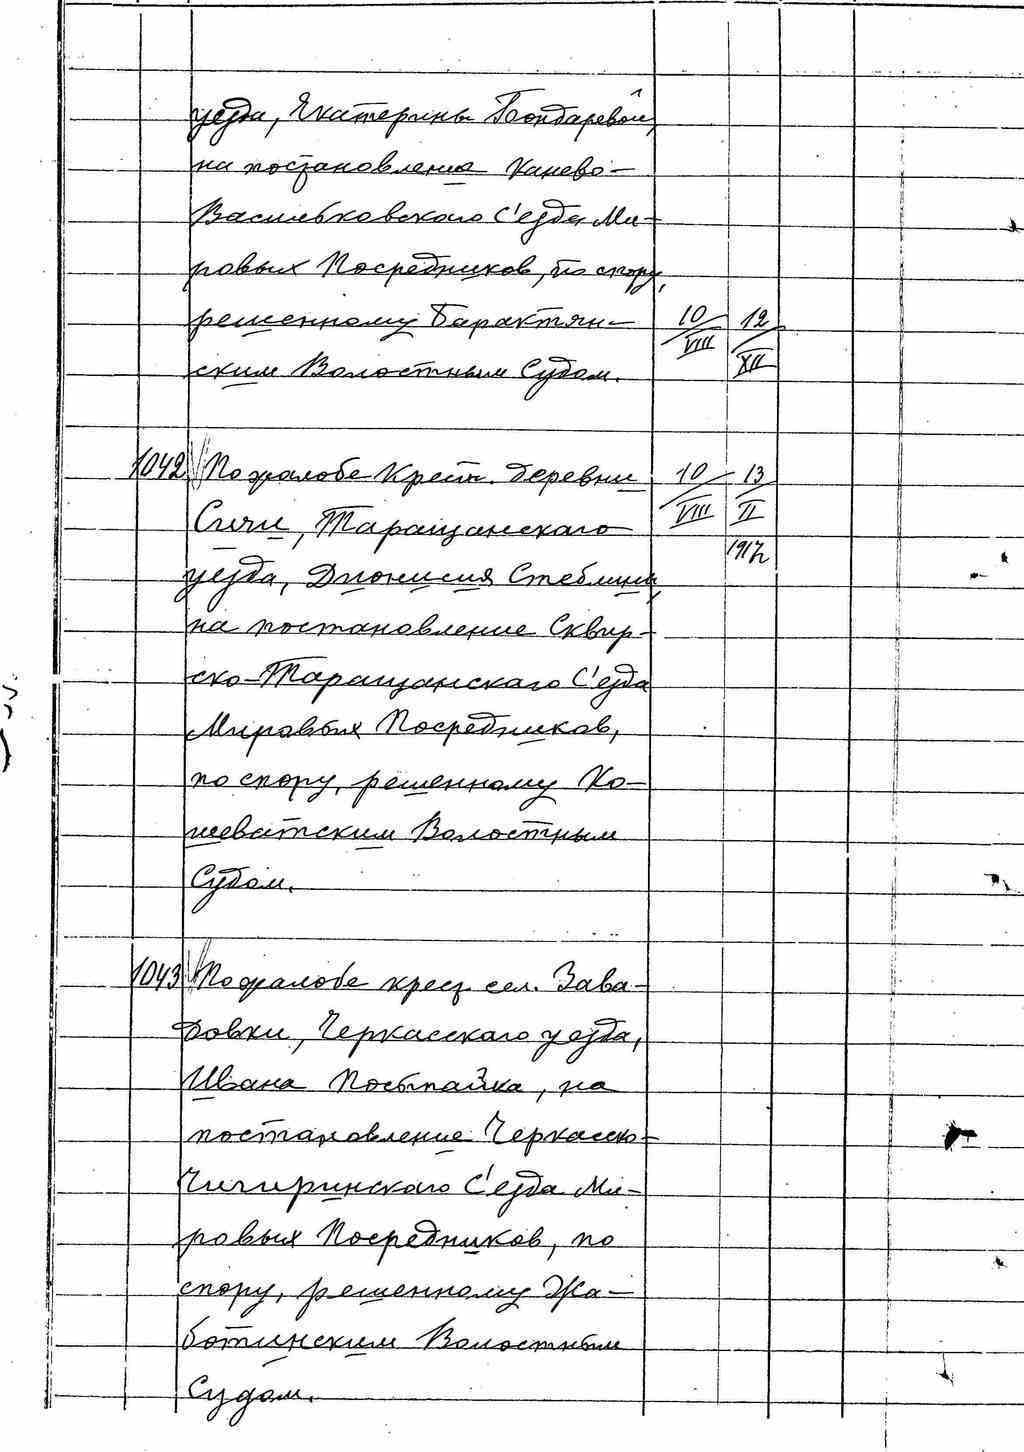 уезда, Екатерины Бондаревой,
на постановления Канево-
Васильковского С'езда Ми-
ровых Посредников, по спору,
решенному Барахтян- 10/VIII 12/XII
ским Волостным Судом.
1042 По жалобе Крест. деревни 10/VIII 13/II
Сичи, Таращанскаго
1917г
уезда, Дионисия Стеблини,
на постановление Сквир-
ско-Таращанскаго С'езда
Мировых Посредников,
по спору, решенному Ко-
шеватским Волостным
Судом.
1043 По жалобе крест. сел. Зава-
довки, Черкасскаго уезда,
Ивана Посыпайка, на
постановление Черкасско-
Чигиринскаго С'езда Ми-
ровых Посредников, по
спору, решенному Жа-
ботинским Волостным
Судом.